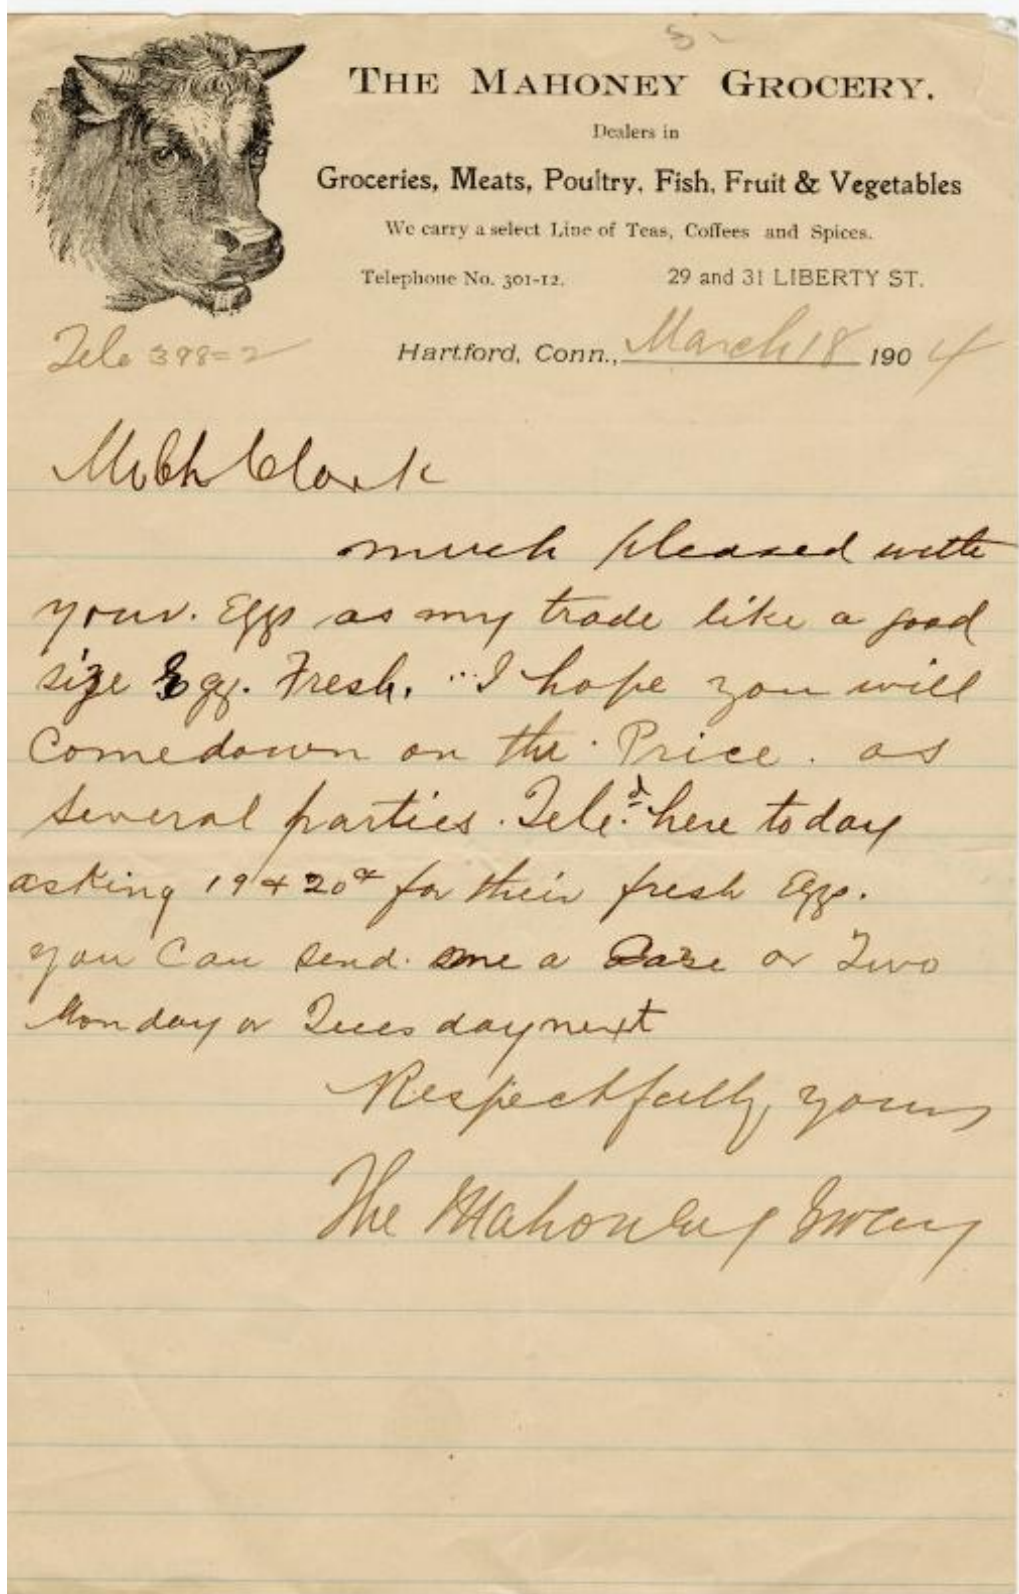 THE MAHONEY GROCERY.
Dealers in
Groceries, Meats, Poultry, Fish, Fruit & Vegetables
We carry a select Line of Teas, Coffees and Spices.
Telephone No. 301-12. 29 and 31 LIBERTY ST.
Tele 398=2
Hartford, Conn., March 18 1904
Clark
much pleased with
your. Eggs as my trade like a good
size Egg. Fresh. I hope you will
Comedown on the Price. as
several parties. Tele'd here today
asking 19 & 20¢ for their fresh Eggs.
you Can send me a Case or Two
Monday or Tuesday next
Respectfully yours
The Mahoney